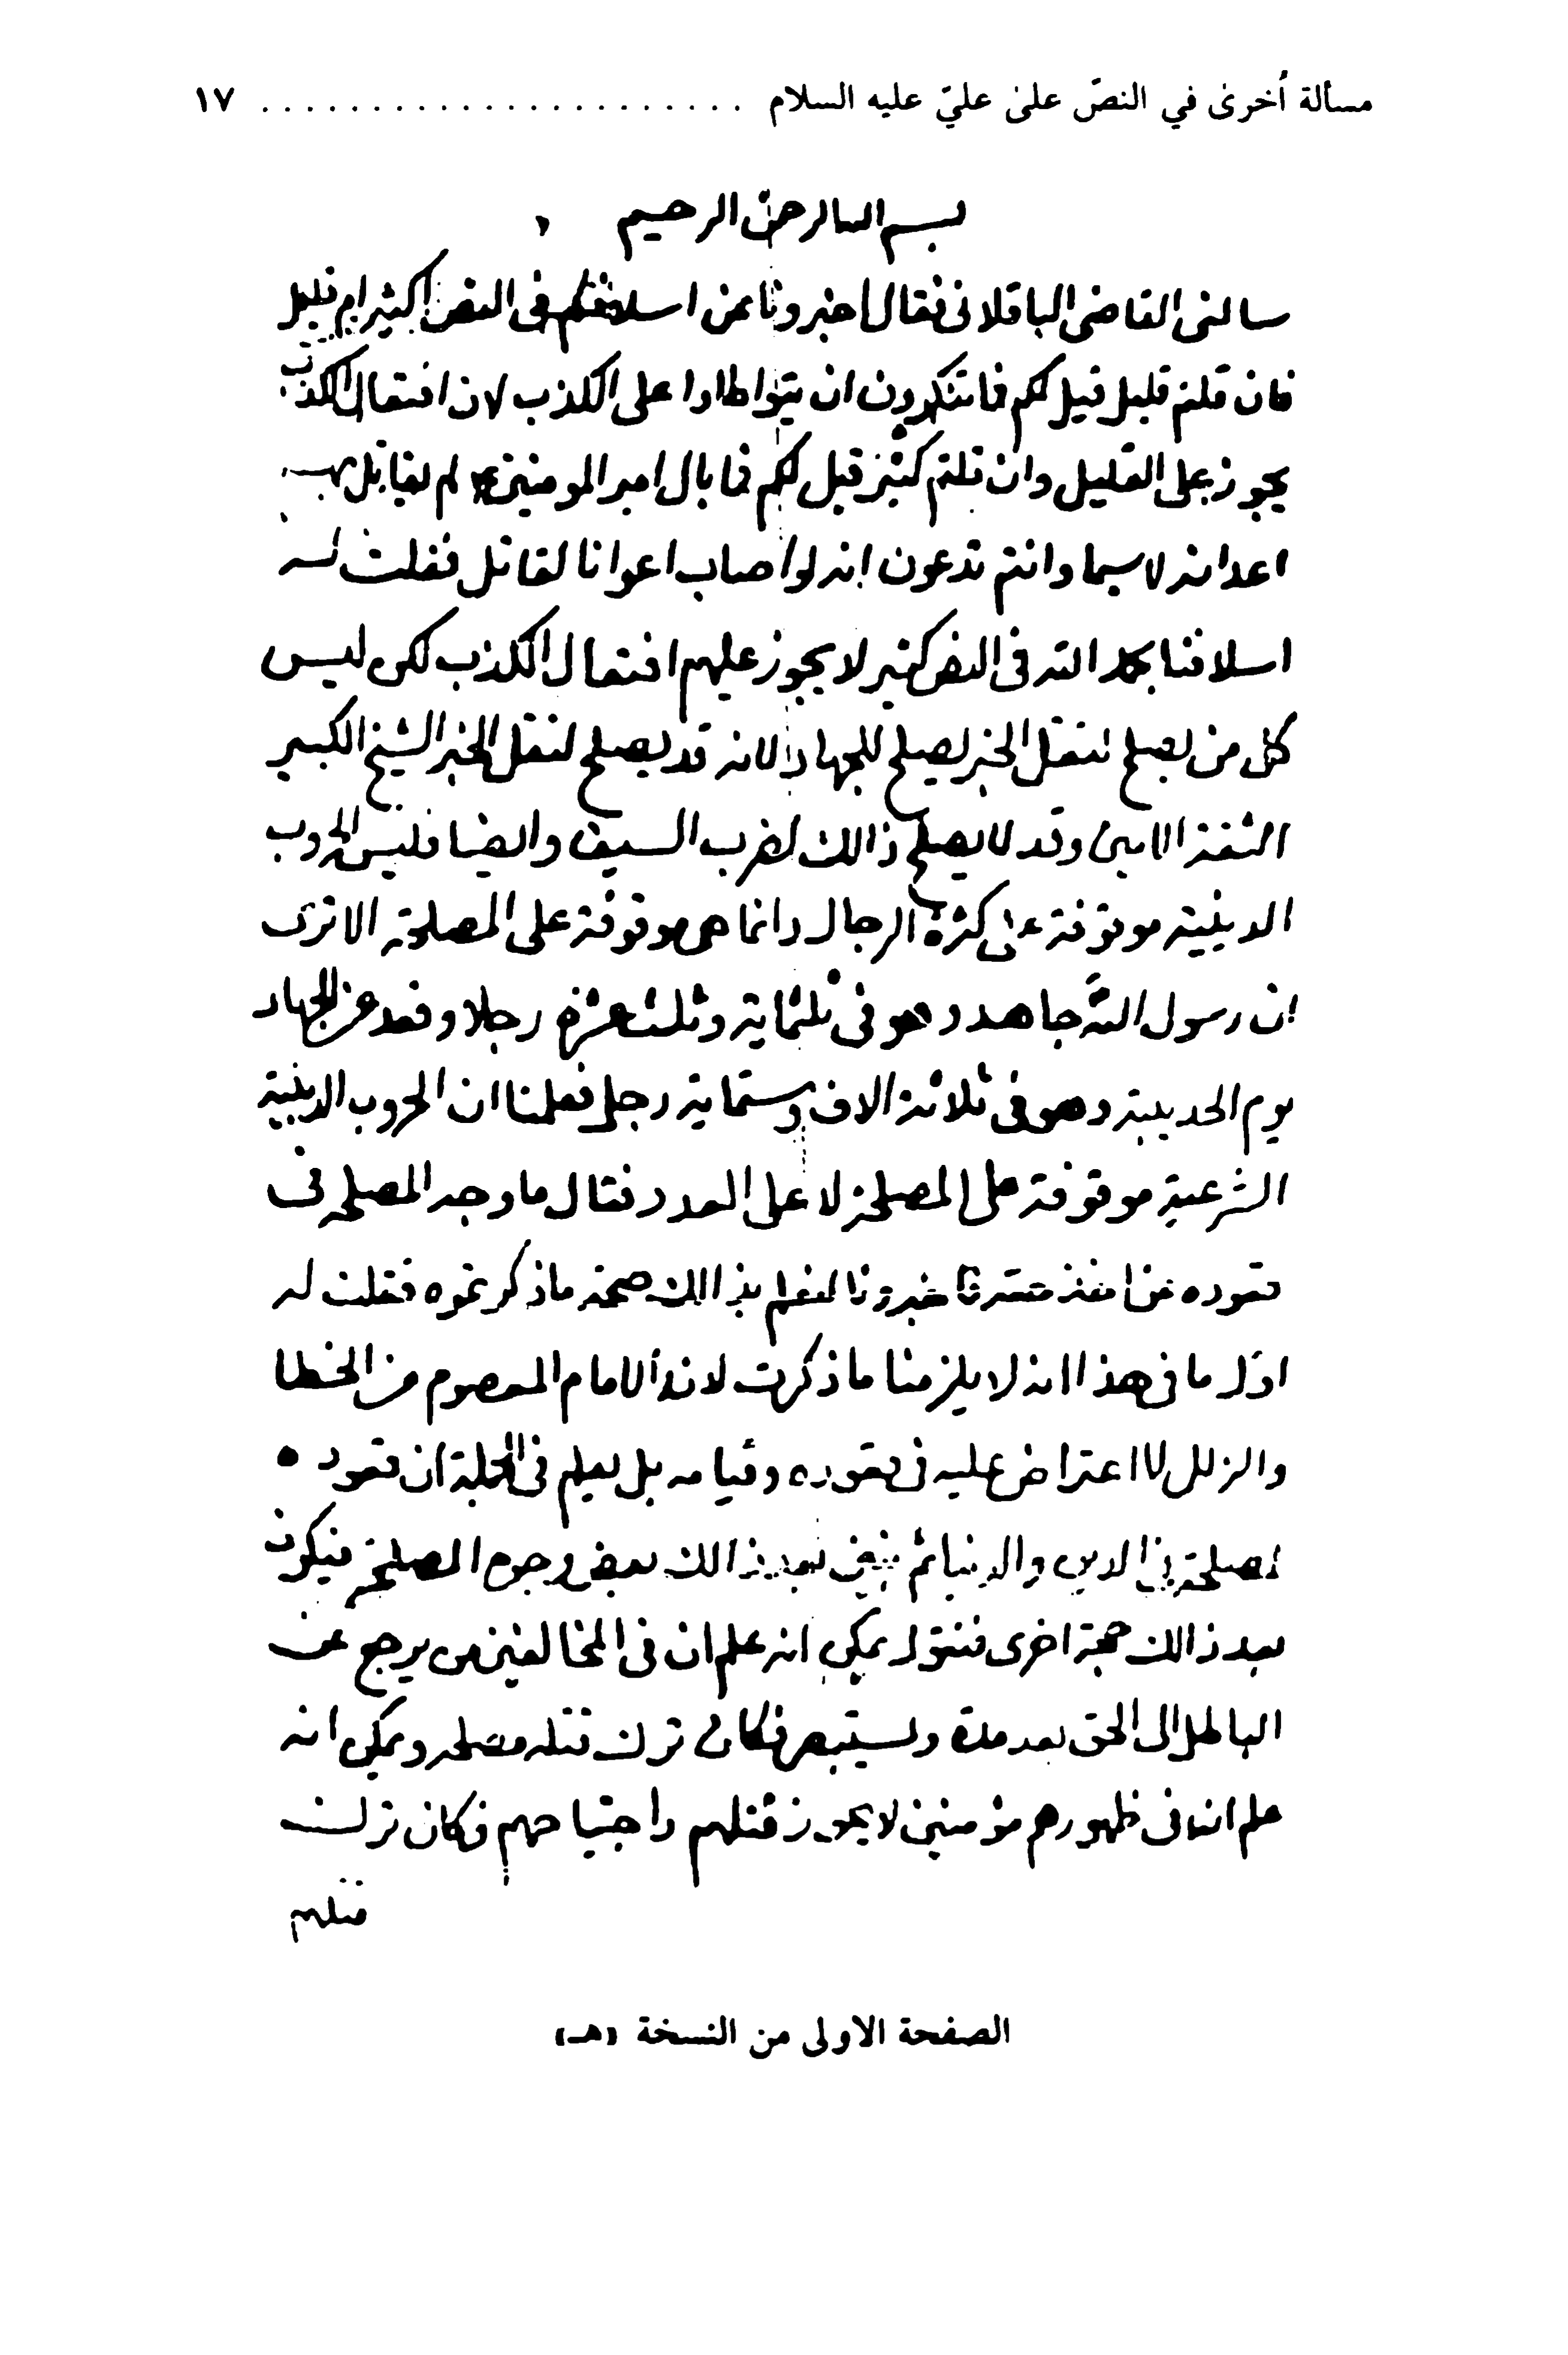 مسألة أخرى في النصّ على عليّ عليه السلام . . . . . . . . . . . . . . . . . . . . . . ١٧
بسم الله الرحمن الرحيم
سالنى القاضى الباقلانى فقال اخبرونا عن اسلافكم فى النص اكثير ام قليل
فان قلتم قليل قيل لكم فما تنكرون ان يتواطاوا على الكذب لان افتعال الكذب
يجوز على القليل وان قلتم كثير قيل لكم فما بال امير المومنين ع لم يقاتل بهم
اعدائه لا سيما وانتم تدعون انه لو اصاب اعوانا لقاتل فقلت له
اسلافنا بحمد الله فى النص كثير لا يجوز عليهم افتعال الكذب لكن ليس
كل من يصلح لنقل الخبر يصلح للجهاد لانه قد يصلح لنقل الخبر الشيخ الكبير
الثقة الامين وقد لا يصلح ذالك لضرب السيف وايضا فليس الحروب
الدينية موقوفة على كثرة الرجال وانما هى موقوفة على المصلحة الا ترى
ان رسول الله جاهد وهو فى ثلثماية وثلث عشرة رجلا وقعد عن الجهاد
يوم الحديبية وهو فى ثلاثة الاف وستماية رجل فعلمنا ان الحروب الدينية
الشرعية موقوفة على المصلحة لا على العدد فقال ما وجه المصلحة فى
قعوده عن اخذ حقه فاخبرونا لنعلم بذالك صحة ما ذكرتموه فقلت له
اول ما فى هذا انه لا يلزمنا ما ذكرت لانه الامام المعصوم من الخطا
والزلل لا اعتراض عليه فى قعوده وقيامه بل يعلم فى الجملة ان قعوده
لمصلحة فى الدين والدنيا ثم بعد ذالك بعض وجوه المصلحة فيكون
بعد ذالك حجة اخرى فنقول يمكن انه علم ان فى المخالفين من يرجع عن
الباطل الى الحق بعد مدة ويستبصر فكان ترك قتله مصلحه ويمكن انه
علم ان فى ظهورهم مؤمنين لا يجوز قتلهم واجتياحهم فكان ترك
قتلهم
الصفحة الاولى من النسخة «هـ»